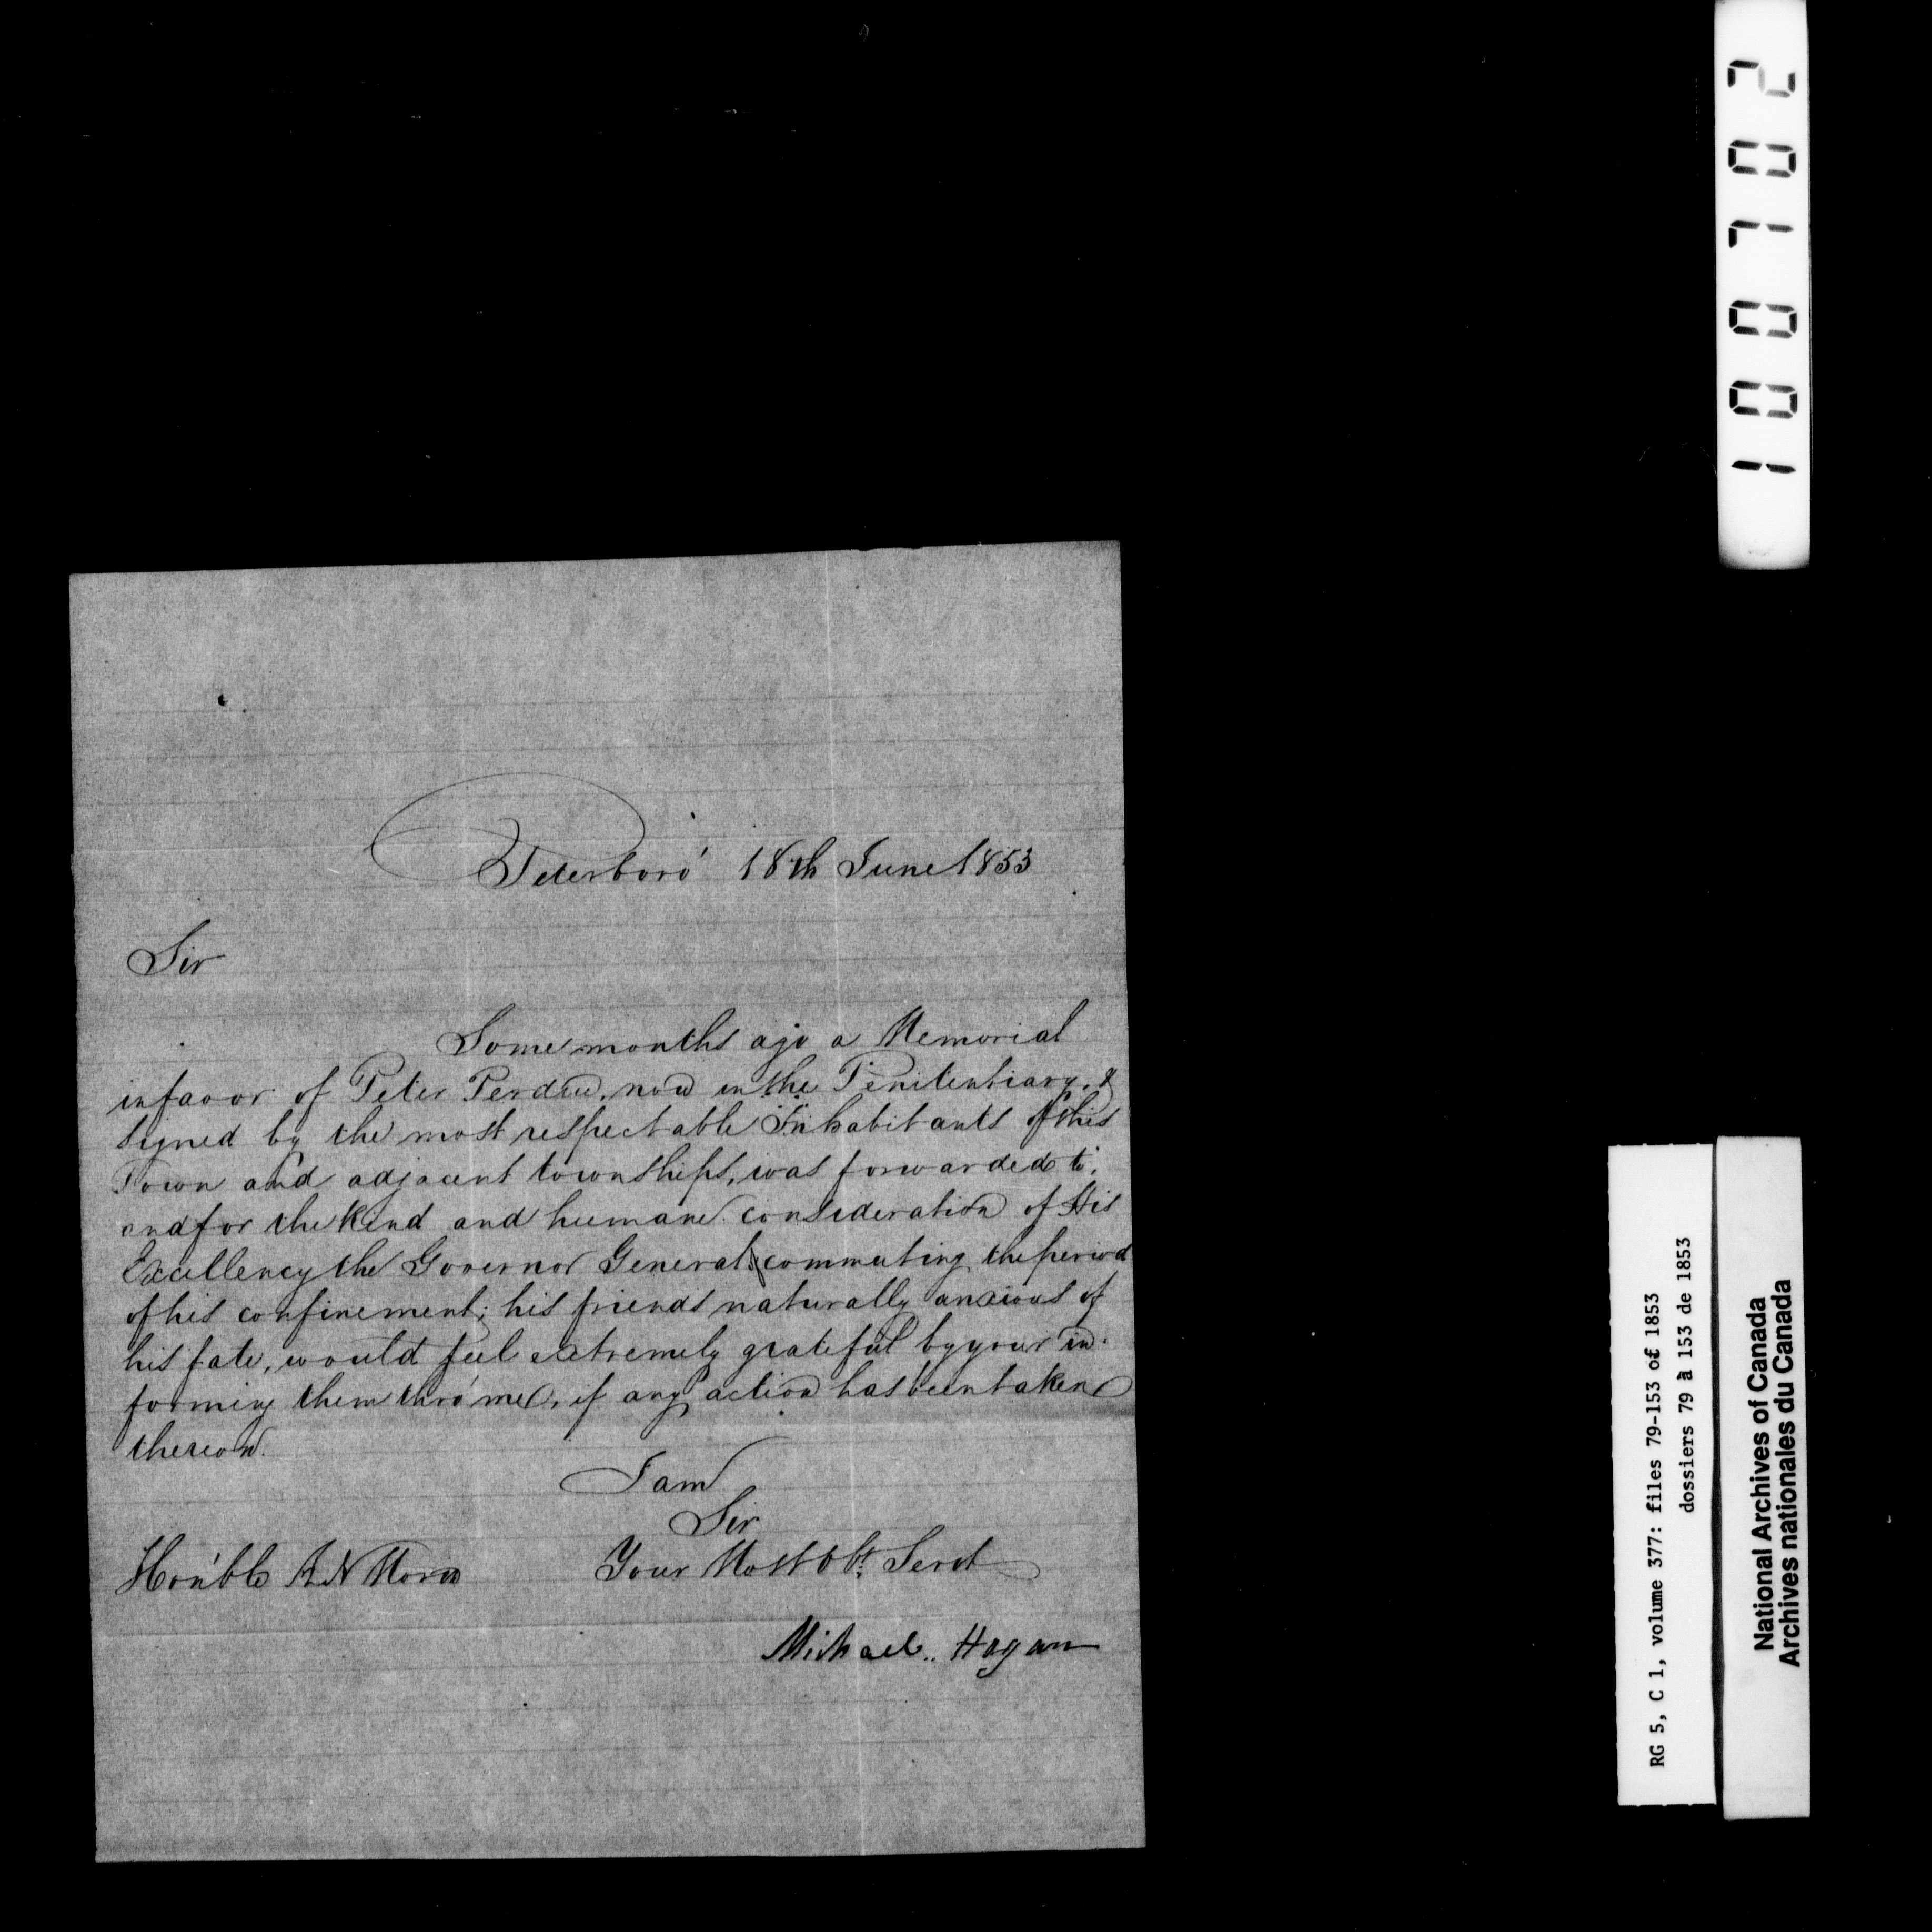 Peterboro' 18th June 1853
Sir
Some months ago a Memorial
in favor of Peter Perdue, now in the Penitentiary, &
signed by the most respectable Inhabitants of this
Town and adjacent townships, was forwarded to,
and for the kind and humane consideration of His
Excellency the Governor General commuting the period
of his confinement; his friends naturally anxious of
his fate, would feel extremely grateful by your in-
forming them thro' me, if any action has been taken
thereon.
I am
Sir
Your Most Obt. Servt
Hon'ble A N Morin
Michael.. Hogan
100702
RG 5, C 1, volume 377: files 79-153 of 1853
dossiers 79 à 153 de 1853
National Archives of Canada
Archives nationales du Canada